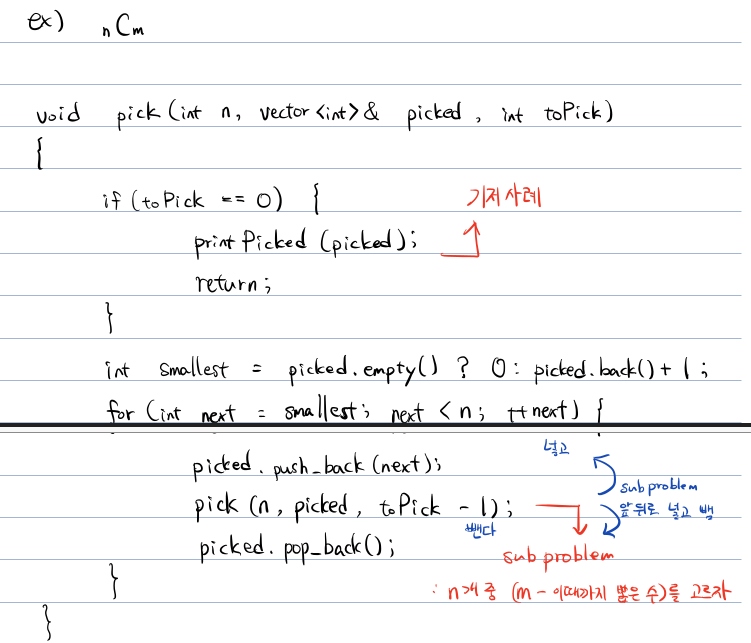 ex) nCm
void pick (int n, vector<int>& picked, int toPick)
{
if (toPick == 0) {
기저사례
printPicked (picked);
return;
}
int smallest = picked.empty() ? 0 : picked.back() + 1;
for (int next = smallest; next < n; ++next) {
넣고
picked.push_back(next);
sub problem
pick (n, picked, toPick - 1);
앞뒤로 넣고 뺌
뺀다
picked.pop_back();
sub problem
: n개 중 (m - 이때까지 뽑은 수)를 고르자
}
}